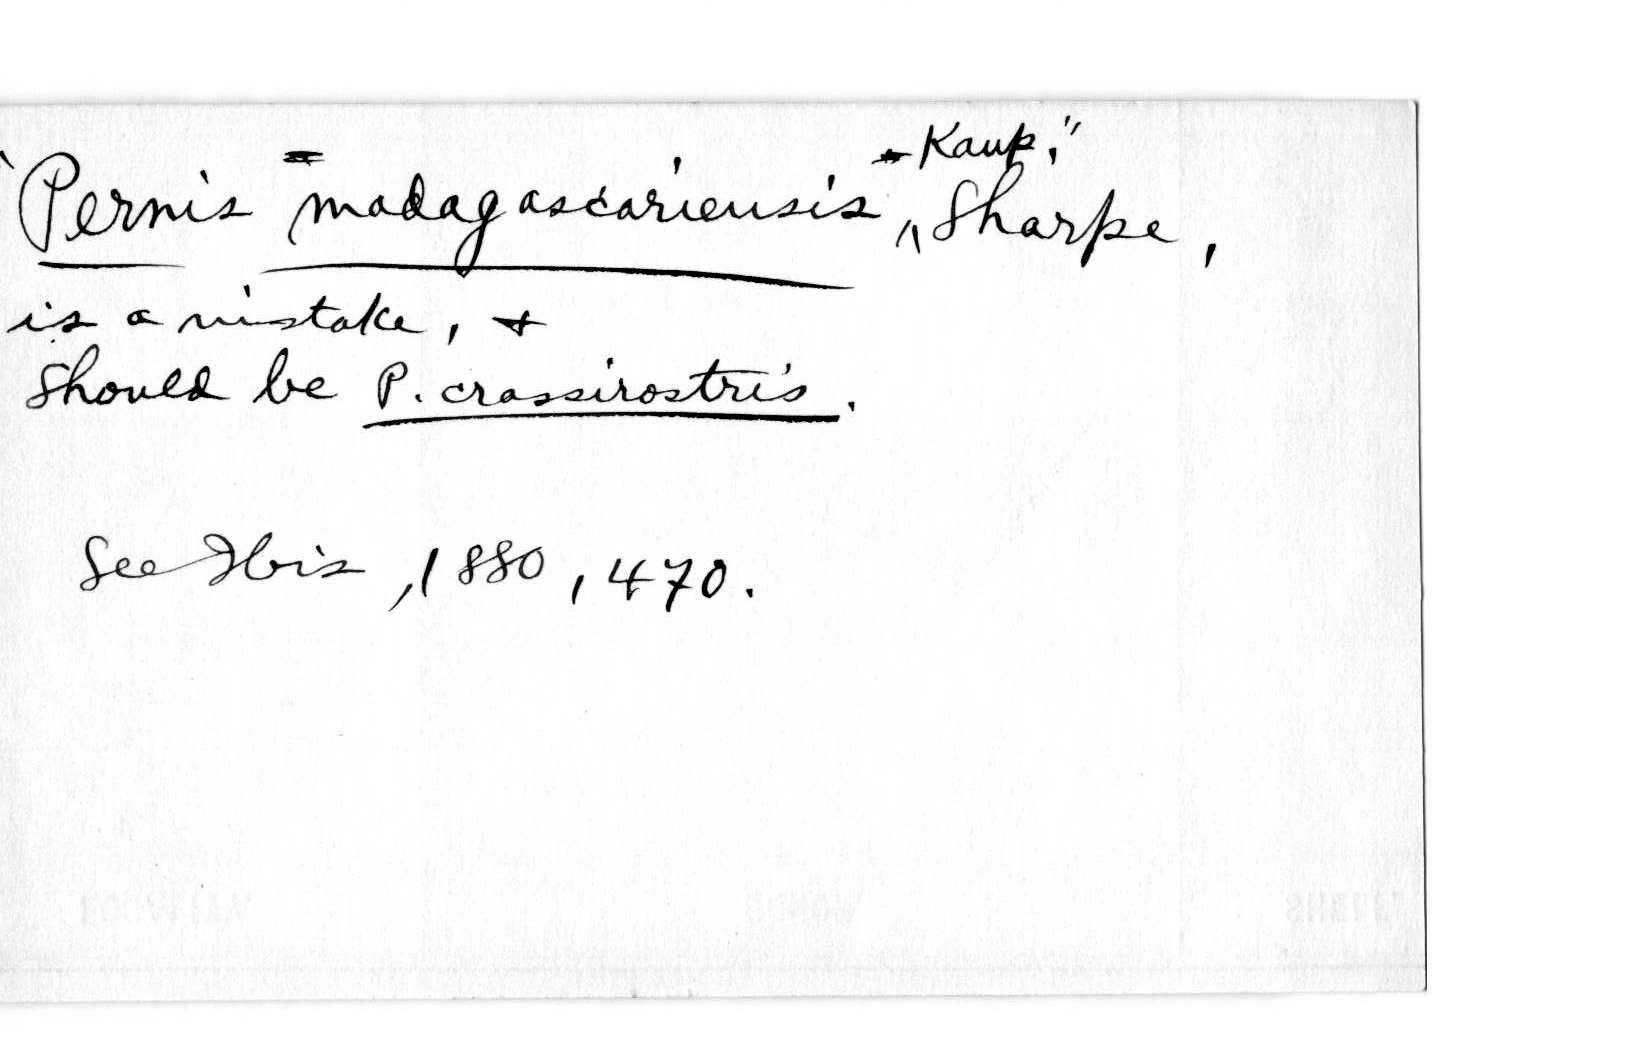 "Pernis madagascariensis Kaup," Sharpe,
is a mistake, +
should be P. crassirostris.
See Ibis, 1880, 470.